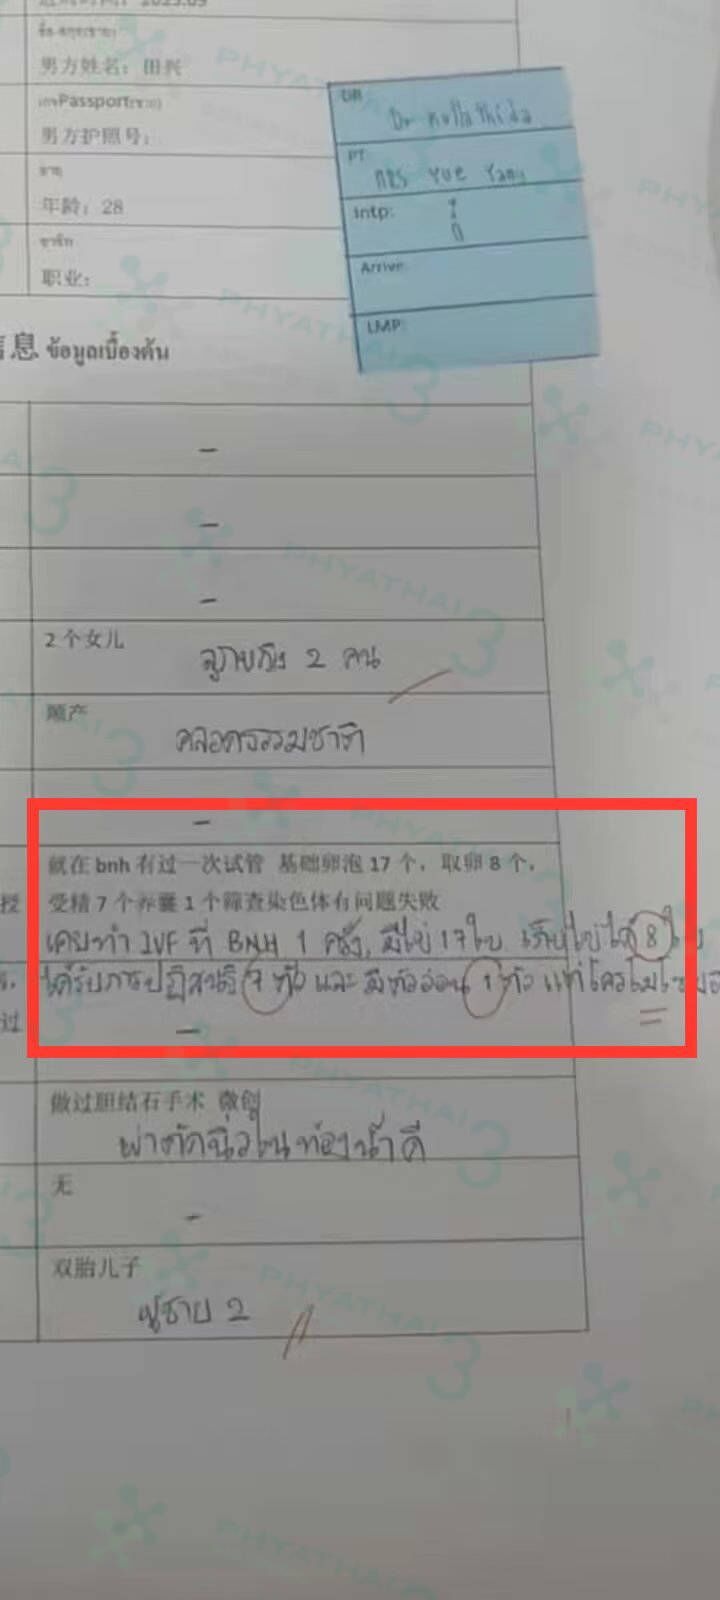 2025.09
ชื่อ-สกุล(ชาย)
男方姓名：田兴
เลขPassport(ชาย)
男方护照号：
อายุ
年龄：28
อาชีพ
职业：
DR
PT
Mrs Yue Yang
Intp:
Arrive:
LMP:
信息 ข้อมูลเบื้องต้น
-
-
-
2个女儿
ลูกหญิง 2 คน
顺产
คลอดธรรมชาติ
-
就在 bnh 有过一次试管 基础卵泡 17 个，取卵 8 个，
授 受精 7 个养囊 1 个筛查染色体有问题失败
เคยทำ IVF ที่ BNH 1 ครั้ง, มีไข่ 17 ใบ เก็บไข่ได้ 8 ใบ
ได้รับการปฏิสนธิ 7 ตัว และ มีตัวอ่อน 1 ตัว แต่โครโมโซม
过
-
做过胆结石手术 微创
ผ่าตัดนิ่วในท่อน้ำดี
无
-
双胎儿子
ผู้ชาย 2
PHYATHAI 3